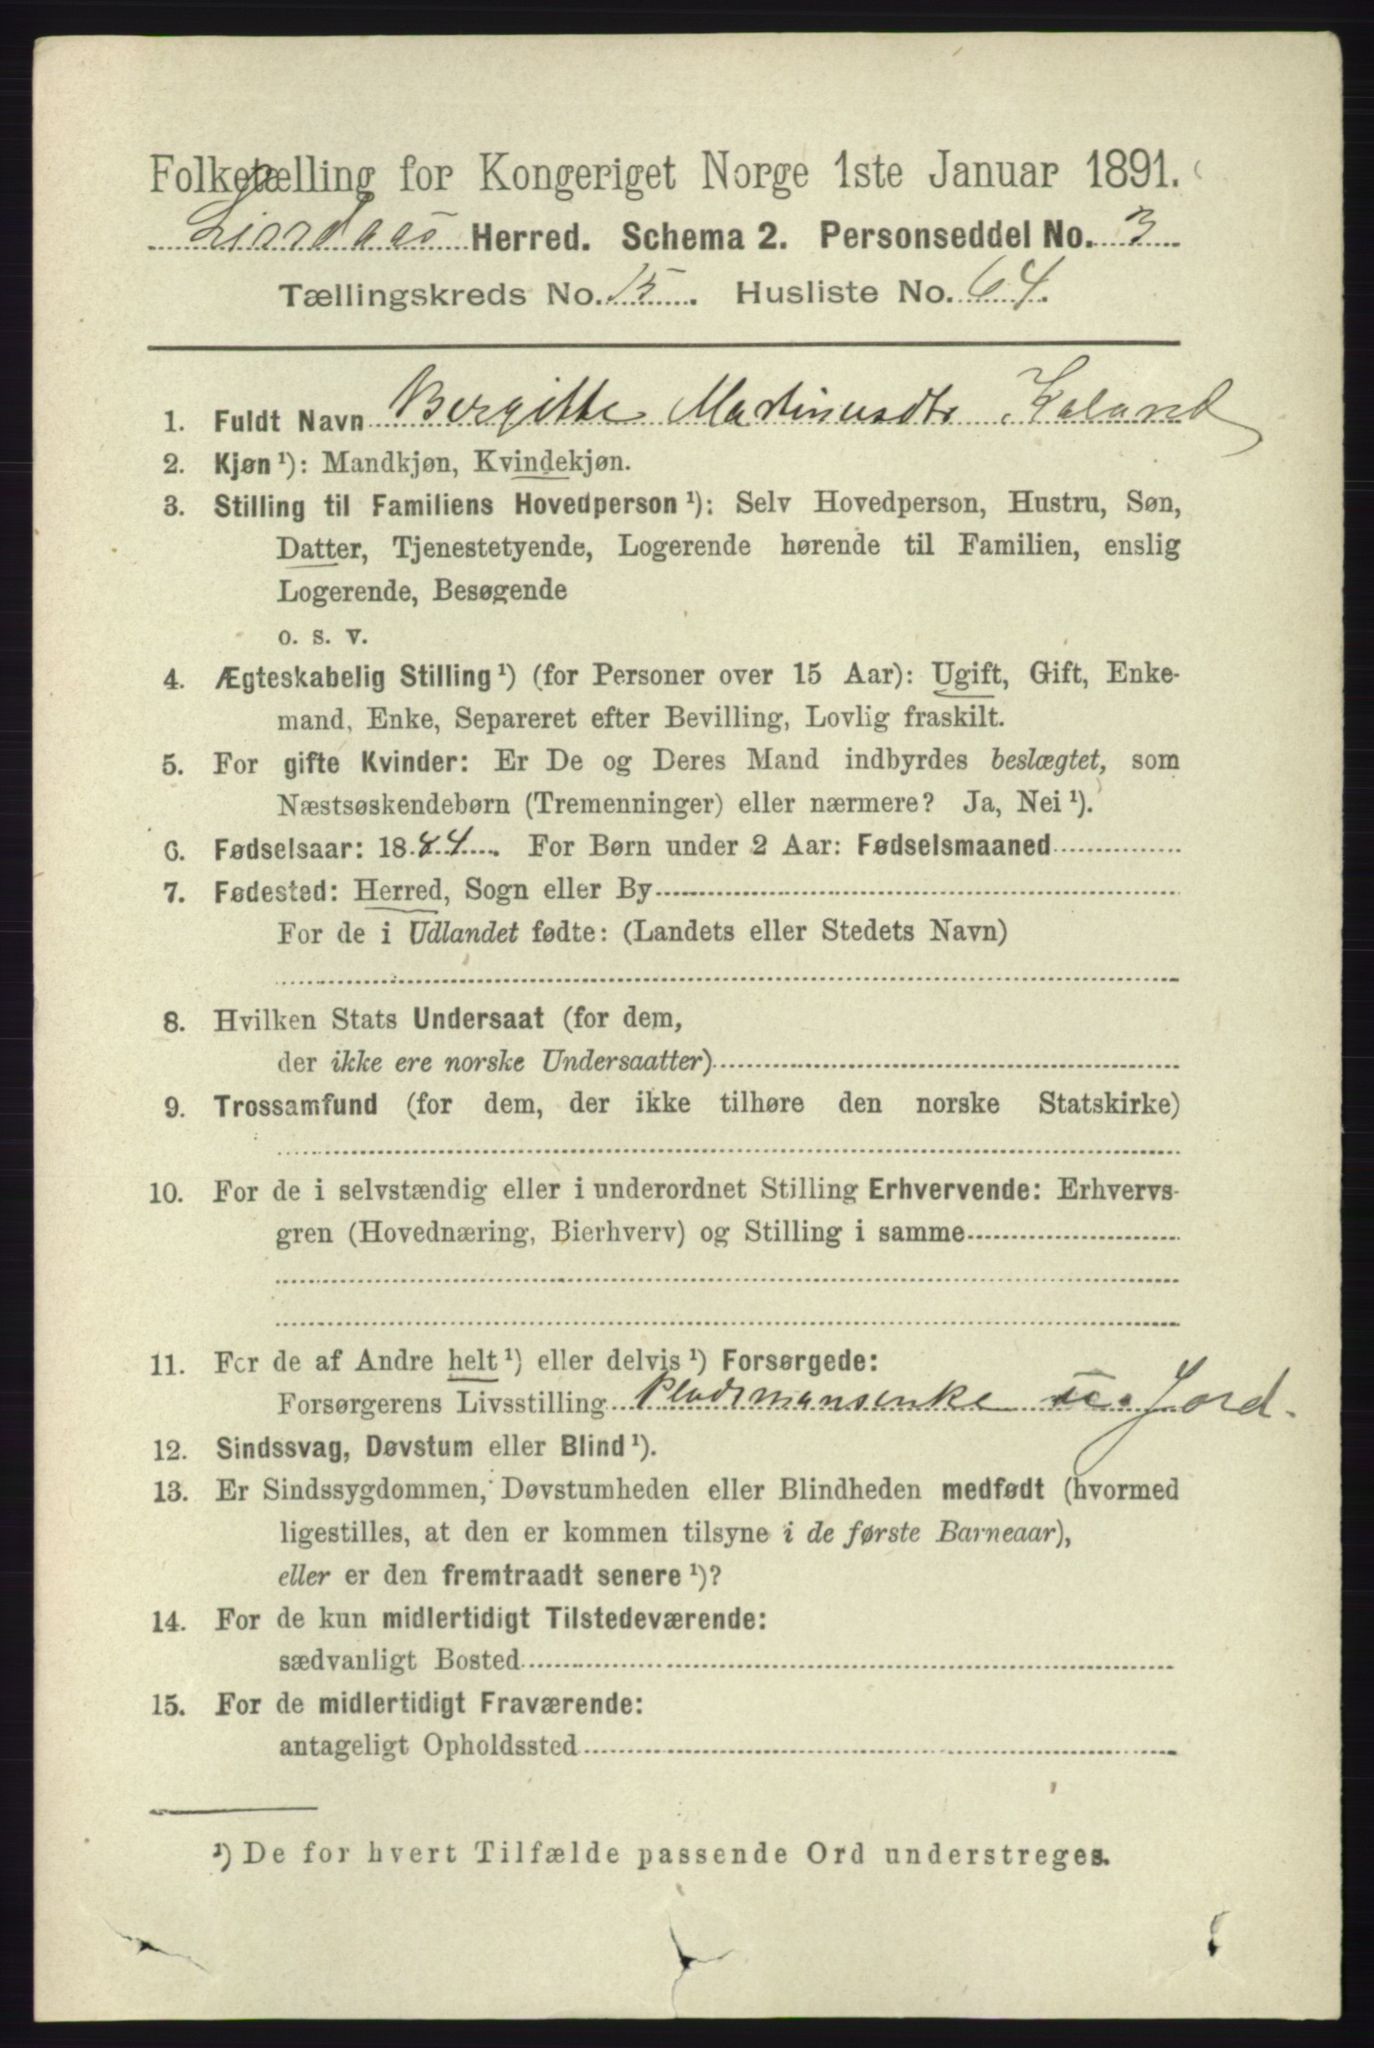 Folketælling for Kongeriget Norge 1ste Januar 1891.
Lindaas Herred. Schema 2. Personseddel No. 3
Tællingskreds No. 15. Husliste No. 64.
1. Fuldt Navn Bergitte Martinusdtr Kaland
2. Kjøn ¹): Mandkjøn, Kvindekjøn.
3. Stilling til Familiens Hovedperson ¹): Selv Hovedperson, Hustru, Søn,
Datter, Tjenestetyende, Logerende hørende til Familien, enslig
Logerende, Besøgende
o. s. v.
4. Ægteskabelig Stilling ¹) (for Personer over 15 Aar): Ugift, Gift, Enke-
mand, Enke, Separeret efter Bevilling, Lovlig fraskilt.
5. For gifte Kvinder: Er De og Deres Mand indbyrdes beslægtet, som
Næstsøskendebørn (Tremenninger) eller nærmere? Ja, Nei ¹).
6. Fødselsaar: 1884. For Børn under 2 Aar: Fødselsmaaned
7. Fødested: Herred, Sogn eller By
For de i Udlandet fødte: (Landets eller Stedets Navn)
8. Hvilken Stats Undersaat (for dem,
der ikke ere norske Undersaatter)
9. Trossamfund (for dem, der ikke tilhøre den norske Statskirke)
10. For de i selvstændig eller i underordnet Stilling Erhvervende: Erhvervs-
gren (Hovednæring, Bierhverv) og Stilling i samme
11. For de af Andre helt ¹) eller delvis ¹) Forsørgede:
Forsørgerens Livsstilling Pladsmansenke u. Jord.
12. Sindssvag, Døvstum eller Blind ¹).
13. Er Sindssygdommen, Døvstumheden eller Blindheden medfødt (hvormed
ligestilles, at den er kommen tilsyne i de første Barneaar),
eller er den fremtraadt senere ¹)?
14. For de kun midlertidigt Tilstedeværende:
sædvanligt Bosted
15. For de midlertidigt Fraværende:
antageligt Opholdssted
¹) De for hvert Tilfælde passende Ord understreges.